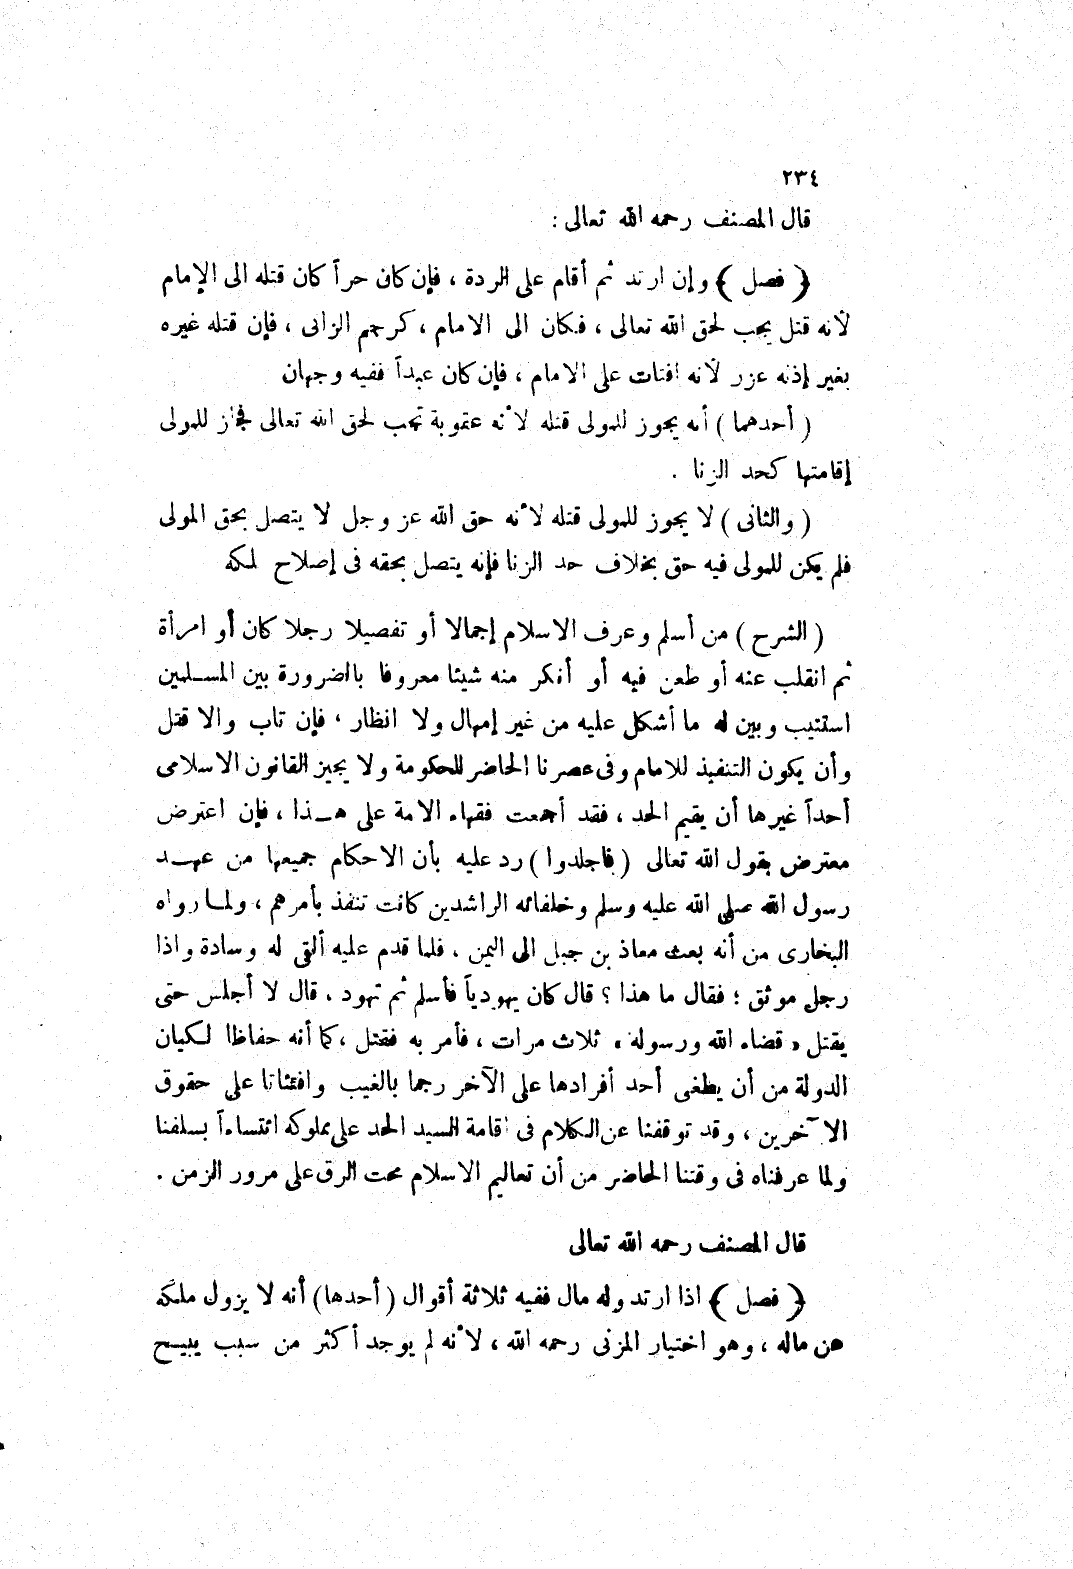 ٢٣٤
قال المصنف رحمه الله تعالى :
﴿ فصل ﴾ وإن ارتد ثم أقام على الردة ، فإن كان حراً كان قتله الى الإمام
لأنه قتل يجب لحق الله تعالى ، فكان الى الامام ، كرجم الزانى ، فإن قتله غيره
بغير إذنه عزر لأنه افتات على الامام ، فإن كان عبداً ففيه وجهان
( أحدهما ) أنه يجوز للمولى قتله لأنه عقوبة تجب لحق الله تعالى فجاز للمولى
إقامتها كحد الزنا .
( والثانى ) لا يجوز للمولى قتله لأنه حق الله عز وجل لا يتصل بحق المولى
فلم يكن للمولى فيه حق بخلاف حد الزنا فإنه يتصل بحقه فى إصلاح لمكه
( الشرح ) من أسلم وعرف الاسلام إجمالا أو تفصيلا رجلا كان أو امرأة
ثم انقلب عنه أو طعن فيه أو أنكر منه شيئا معروفا بالضرورة بين المسلمين
استتيب وبين له ما أشكل عليه من غير إمهال ولا انظار ، فإن تاب والا قتل
وأن يكون التنفيذ للامام وفى عصرنا الحاضر للحكومة ولا يجيز القانون الاسلامى
أحداً غيرها أن يقيم الحد ، فقد أجمعت فقهاء الامة على هذا ، فإن اعترض
معترض بقول الله تعالى ( فاجلدوا ) رد عليه بأن الاحكام جميعها من عهد
رسول الله صلى الله عليه وسلم وخلفائه الراشدين كانت تنفذ بأمرهم ، ولما رواه
البخارى من أنه بعث معاذ بن جبل الى اليمن ، فلما قدم عليه ألقى له وسادة واذا
رجل موثق ؛ فقال ما هذا ؟ قال كان يهودياً فأسلم ثم تهود ، قال لا أجلس حتى
يقتل « قضاء الله ورسوله » ثلاث مرات ، فأمر به فقتل ، كما أنه حفاظا لكيان
الدولة من أن يطغى أحد أفرادها على الآخر رجما بالغيب وافتئاتا على حقوق
الآخرين ، وقد توقفنا عن الكلام فى اقامة السيد الحد على مملوكه ائتساءاً بسلفنا
ولما عرفناه فى وقتنا الحاضر من أن تعاليم الاسلام محت الرق على مرور الزمن .
قال المصنف رحمه الله تعالى
﴿ فصل ﴾ اذا ارتد وله مال ففيه ثلاثة أقوال ( أحدها ) أنه لا يزول ملكه
عن ماله ، وهو اختيار المزنى رحمه الله ، لأنه لم يوجد أكثر من سبب يبيح